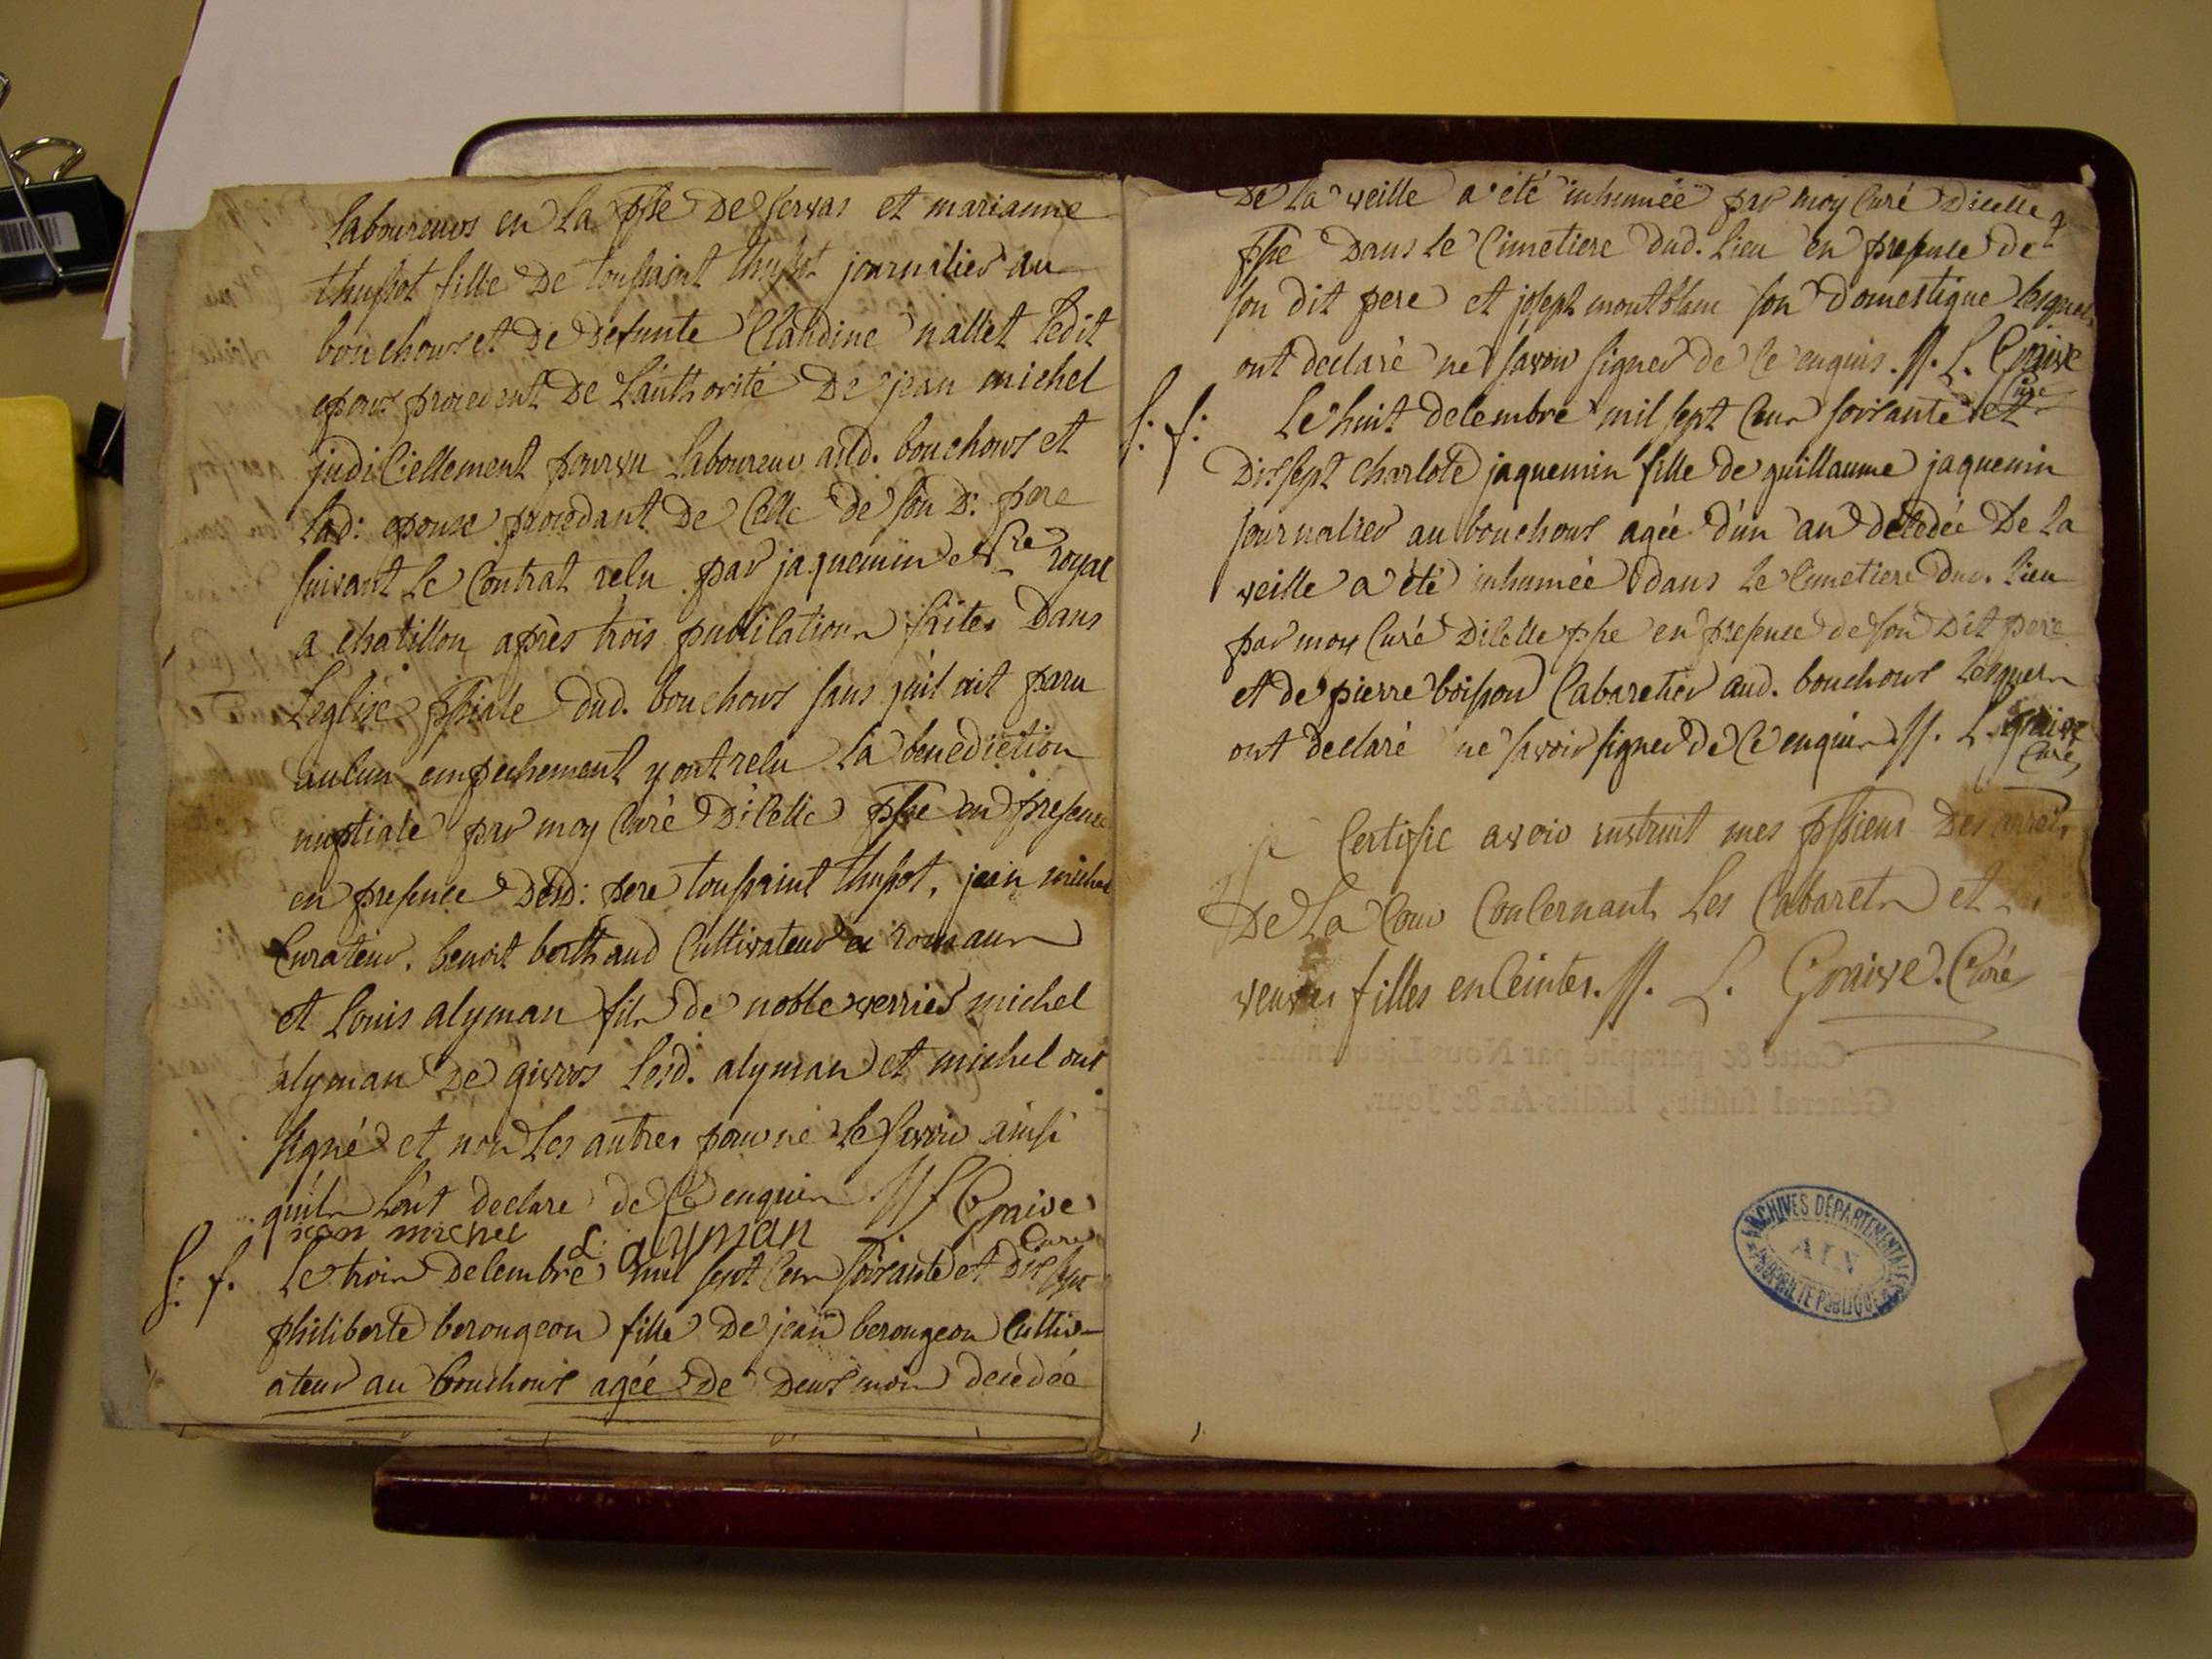 laboureurs en la ppse de servas et marianne
thussot fille de toussaint thussot journalier au
bouchoux et de defunte Claudine nallet ledit
epoux procedent de l'authorité de jean michel
judiciellement pourvu laboureur aud. bouchoux et
lad: epouse procedant de celle de son d: pere
suivant le contrat recu par jaquemin n.re royal
a chatillon après trois publications faites dans
l'eglise ppsiale dud. bouchoux sans qu'il ait paru
aucun empechement y ont recu la benediction
nuptiale par moy Curé d'icelle ppse en presence
en presence desd: pere toussaint thussot, jean michel
Curateur, benoit berthaud Cultivateur a romans
et Louis alyman fils de noble verrier michel
alyman de givors lesd. alyman et michel ont
signé et non les autres pour ne le savoir ainsi
quils l'ont declare de ce enquis //. L Graive
jean michel L: alyman Curé
s: f. le trois decembre mil sept cens soixante et dix sept
philiberte berougeon fille de jean berougeon Cultiv-
ateur au bouchoux agée de deux mois decedée
de la veille a été inhumée par moy Curé d'icelle
ppse dans le Cimetiere dud. lieu en presence de
son dit pere et joseph son domestique lesquels
ont declaré ne savoir signer de ce enquis. //. L. Graive
Curé
s: f: le huit decembre mil sept cens soixante et
dix sept charlote jaquemin fille de guillaume jaquemin
journalier au bouchoux agée d'un an decedée de la
veille a été inhumée dans le Cimetiere dud. lieu
par moy Curé d'icelle ppse en presence de son dit pere
et de pierre boisson Cabaretier aud. bouchoux lesquels
ont declaré ne savoir signer de ce enquis //. L. Graive
Curé
je Certifie avoir instruit mes ppsiens des arrets
de la Cour Concernant les Cabarets et les
veuves filles enceintes. //. L. Graive. Curé
Cotté & paraphé par Nous Lieutenant
Général susdit, lesdits An & Jour.
ARCHIVES DÉPARTEMENTALES
AIN
PROPRIÉTÉ PUBLIQUE